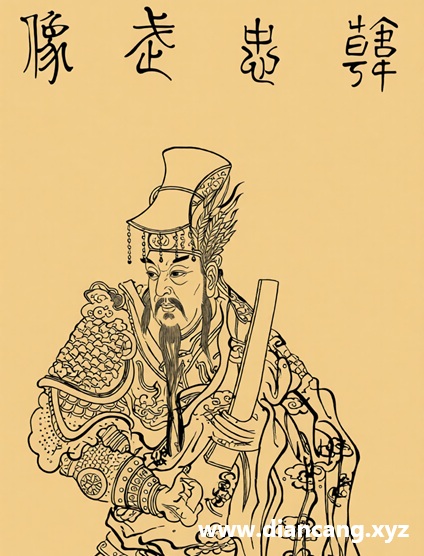 韓忠武像
www.diancang.xyz